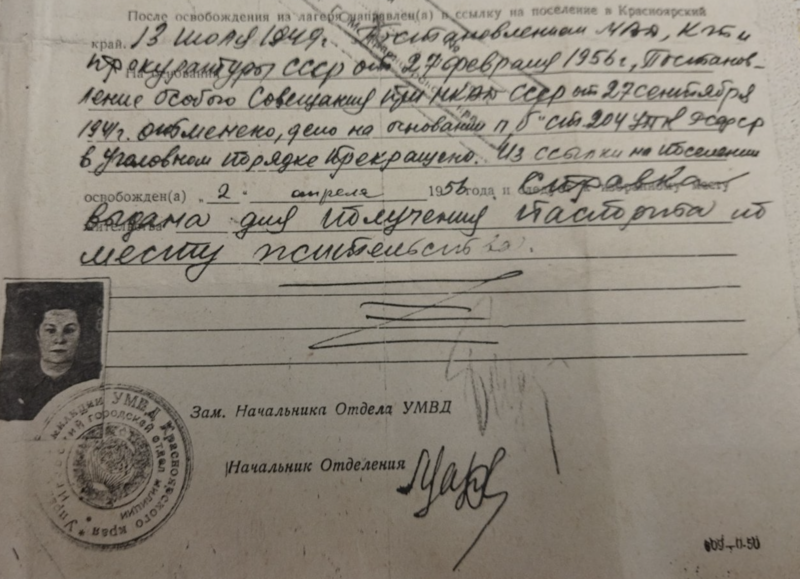 После освобождения из лагеря направлен(а) в ссылку на поселение в Красноярский
край. 13 июля 1949г. Постановлением МВД, КГБ и
Прокуратуры СССР от 27 февраля 1956г, Постанов-
ление Особого Совещания при НКВД СССР от 27 сентября
1941г. отменено, дело на основании п. "б" ст 204 УПК РСФСР
в Уголовном порядке прекращено. Из ссылки на поселении
освобожден(а) „2" апреля 1956 года и Справка
выдана для получения Паспорта по
месту жительства.
Зам. Начальника Отдела УМВД
Начальник Отделения
УМВД Красноярского края
городской отдел милиции